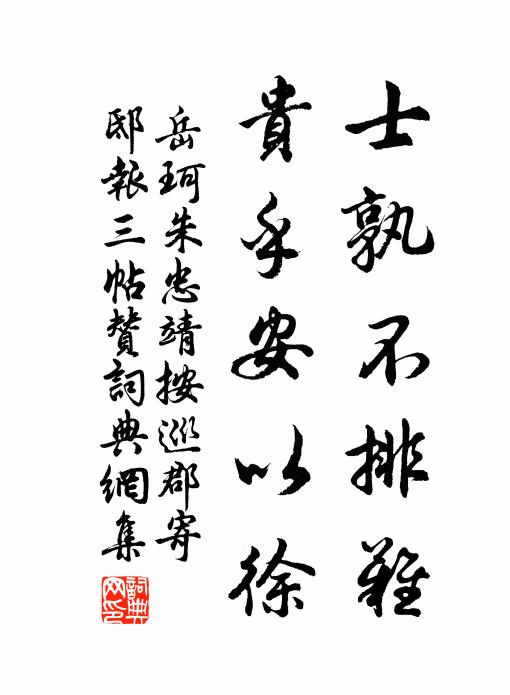 士孰不排難
貴乎安以徐
岳珂朱忠靖按巡郡寄
邸報三帖贊詞典網集
詞典網印